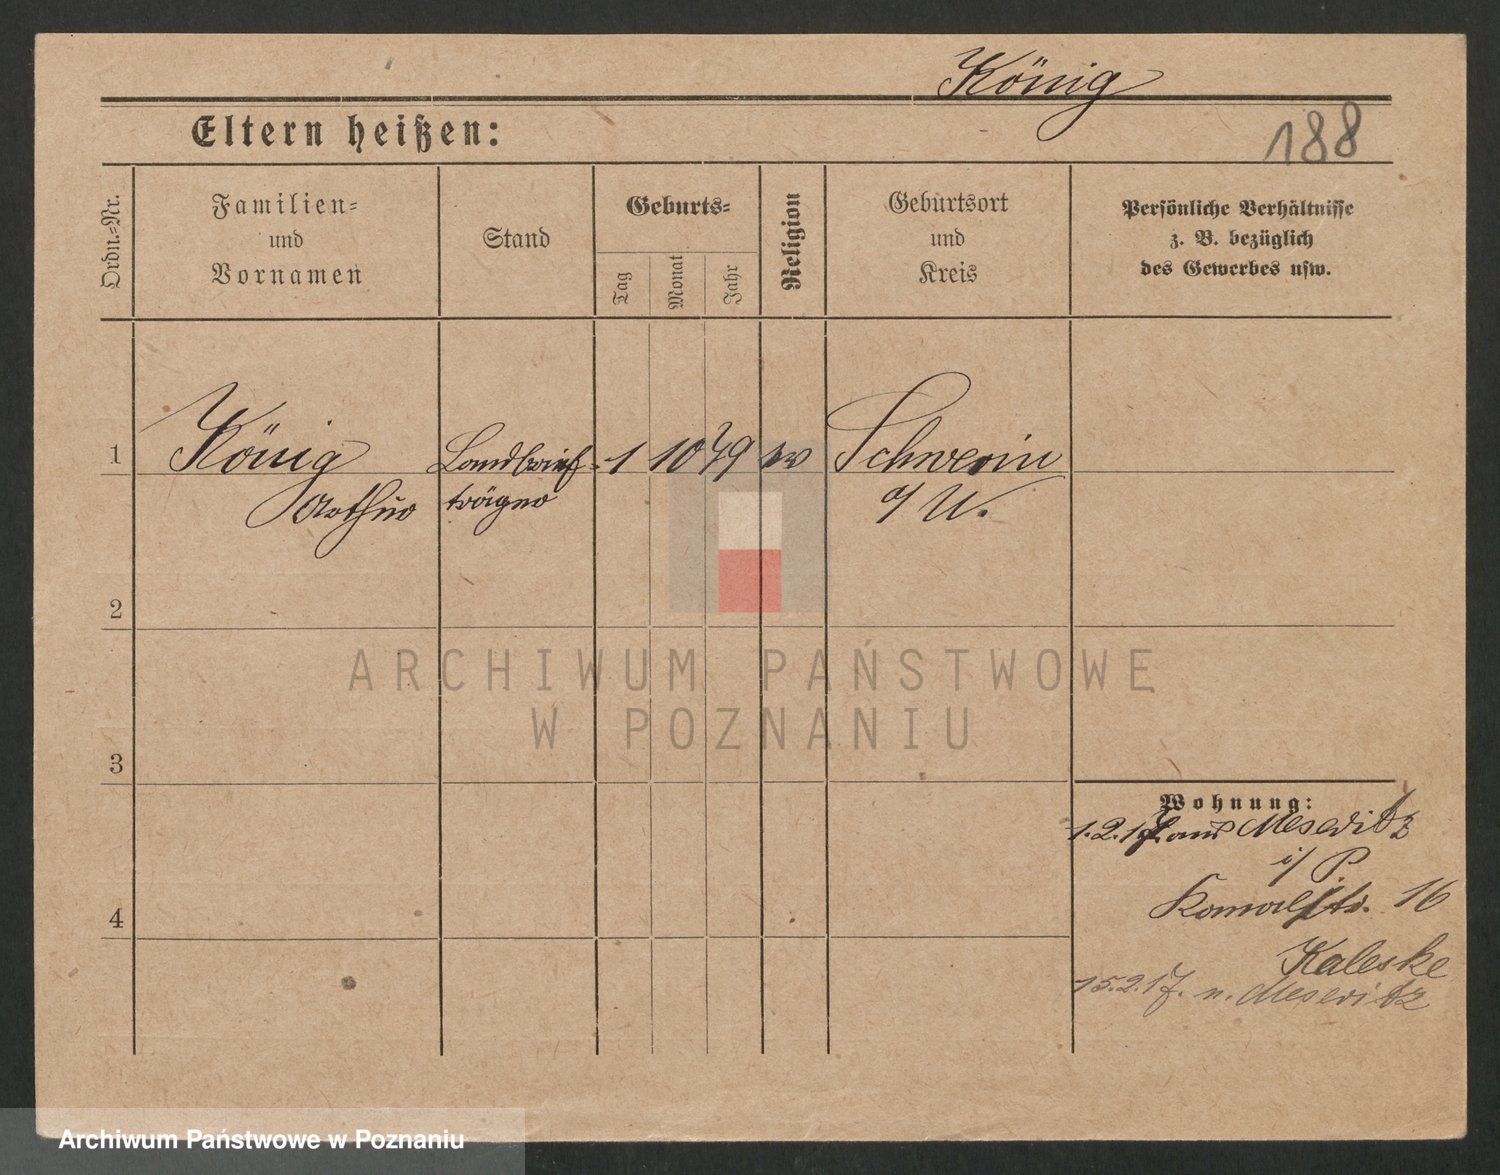 König
Eltern heißen:
188
Ordn.=Nr.
Familien=
und
Vornamen
Stand
Geburts=
Tag
Monat
Jahr
Religion
Geburtsort
und
Kreis
Persönliche Verhältnisse
z. B. bezüglich
des Gewerbes usw.
1
König
Arthur
Landbrief-
träger
1 10 79 ev
Schwerin
a/W.
2
3
4
Wohnung:
1.2.17 aus Meseritz
i/P.
str. 16
Kaleske
15.2.17. n. Meseritz
ARCHIWUM PAŃSTWOWE
W POZNANIU
Archiwum Państwowe w Poznaniu